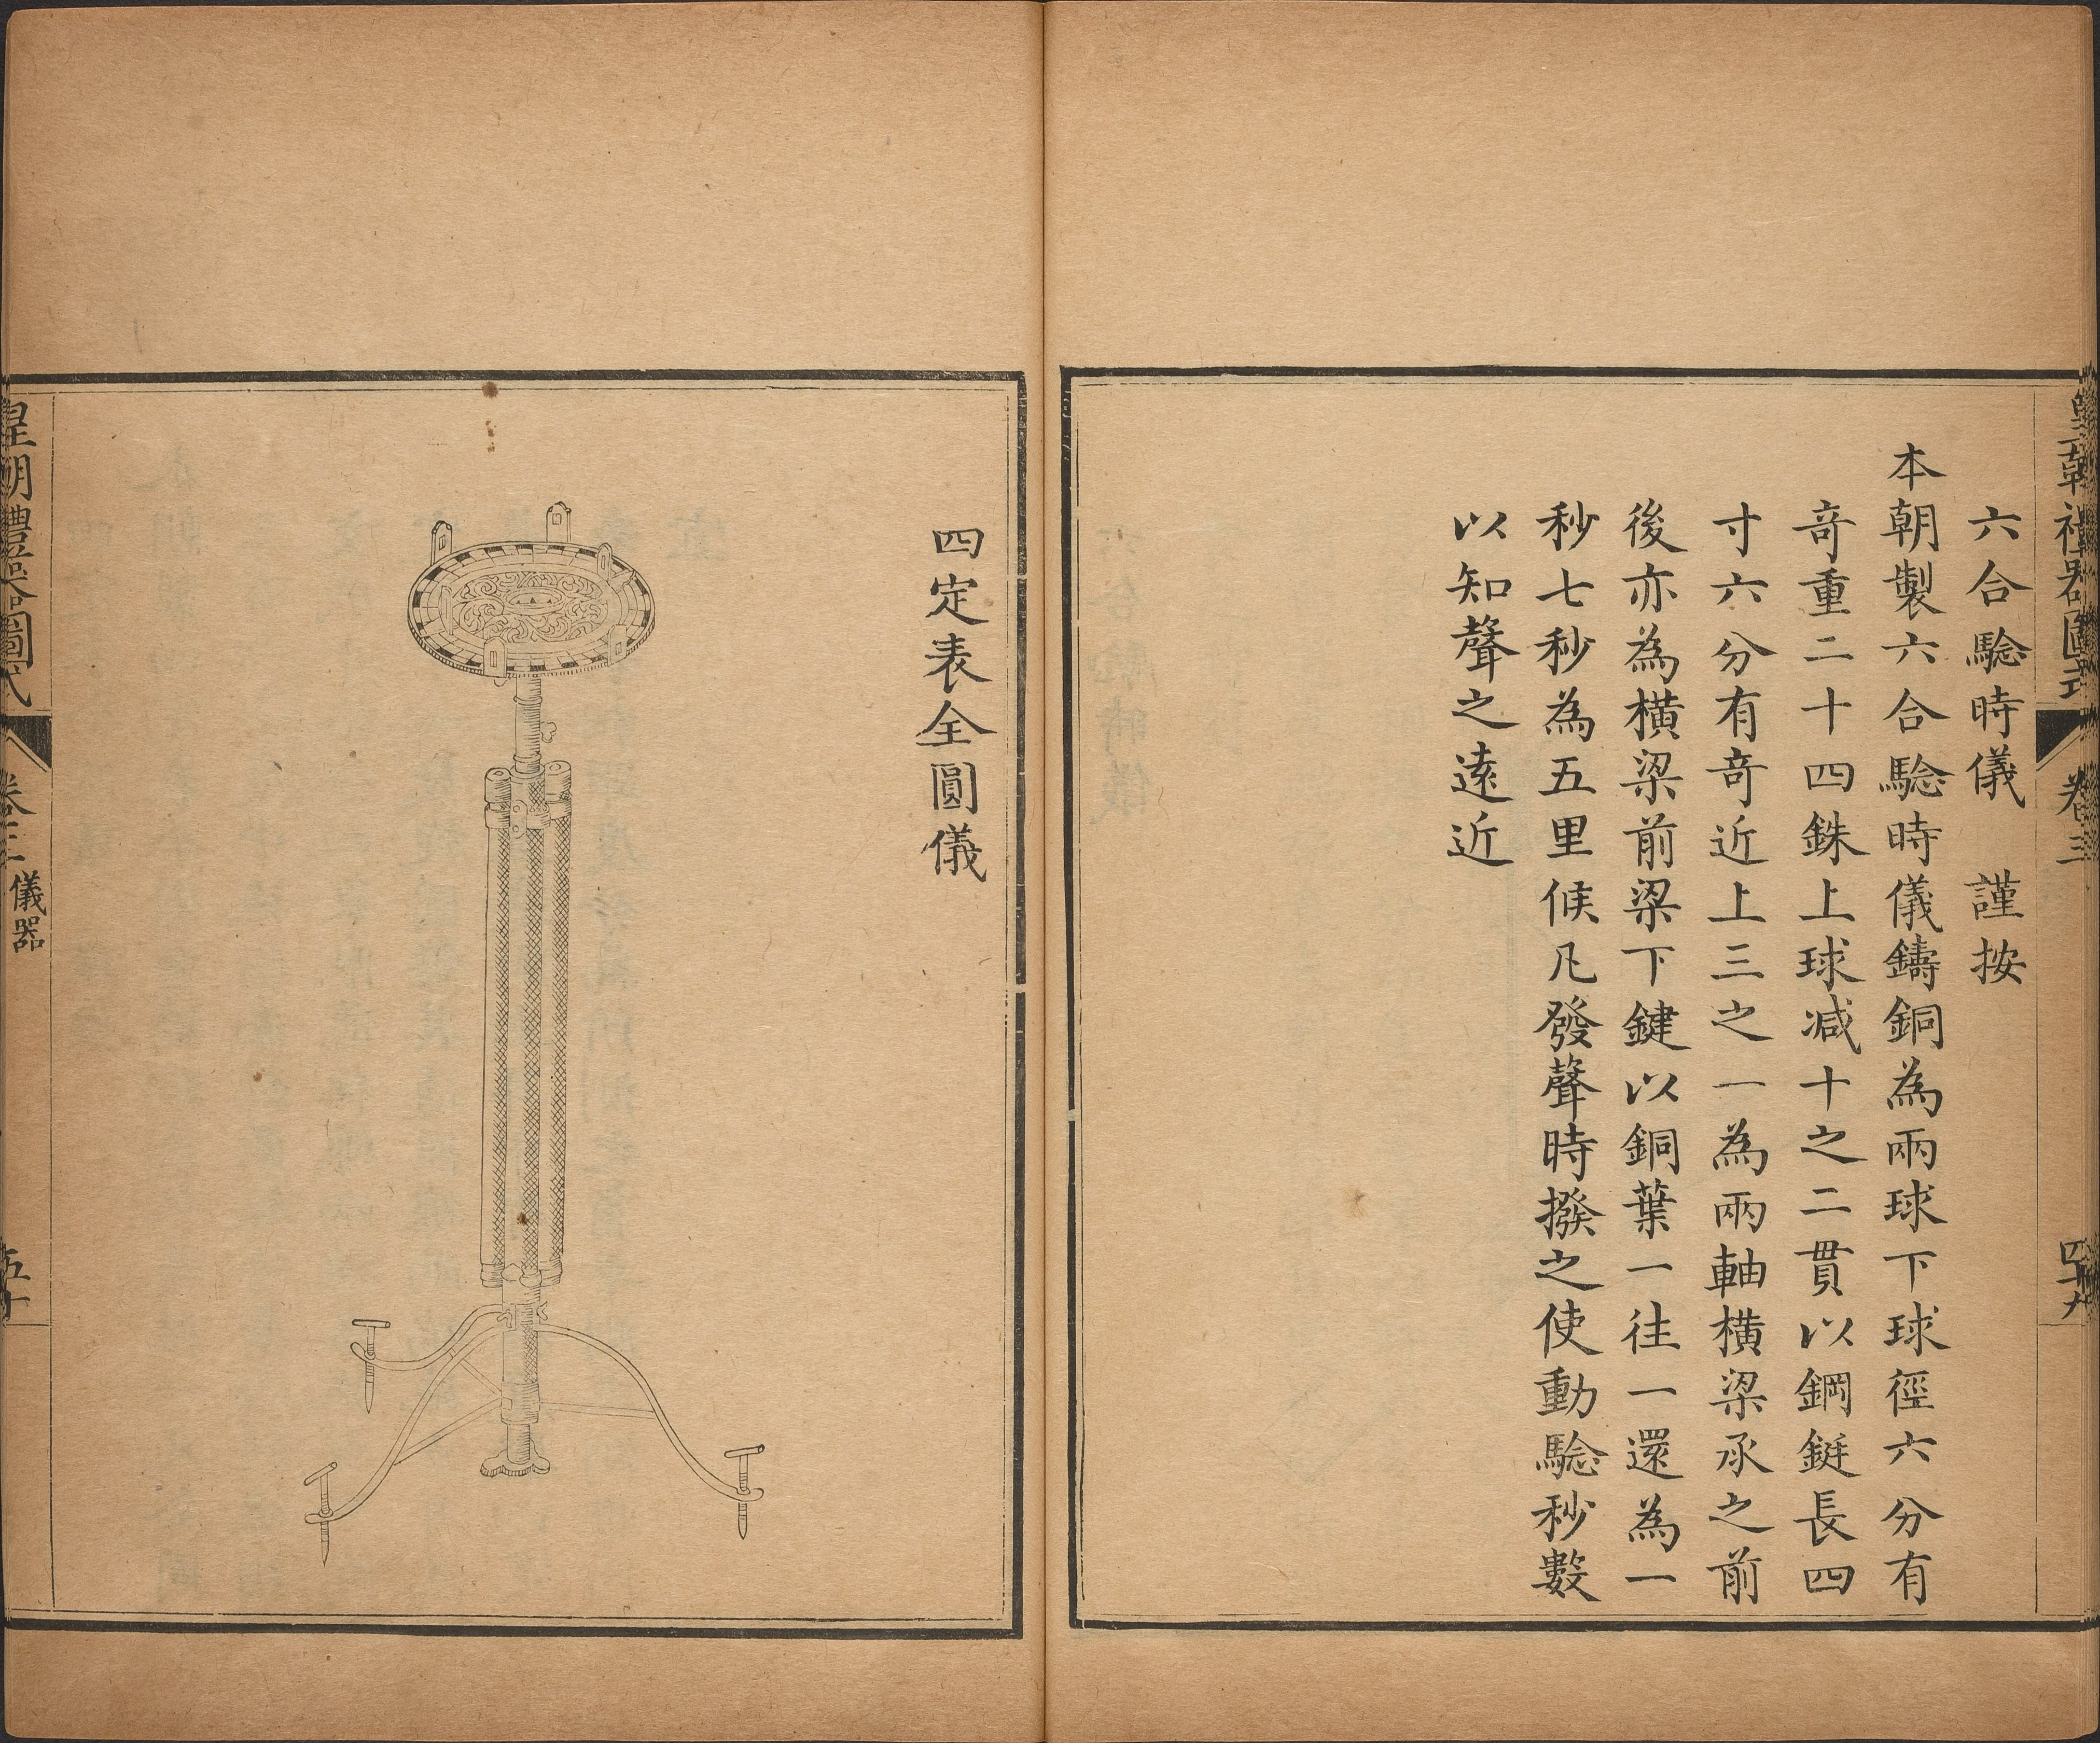 皇朝禮器圖式 卷三 四十九
六合騐時儀 謹按
本朝製六合騐時儀鑄銅為兩球下球徑六分有
竒重二十四銖上球减十之二貫以鋼鋌長四
寸六分有竒近上三之一為兩軸橫梁承之前
後亦為橫梁前梁下鍵以銅葉一往一還為一
秒七秒為五里候凡發聲時撥之使動騐秒數
以知聲之遠近
四定表全圓儀
皇朝禮器圖式 卷三 儀器 五十